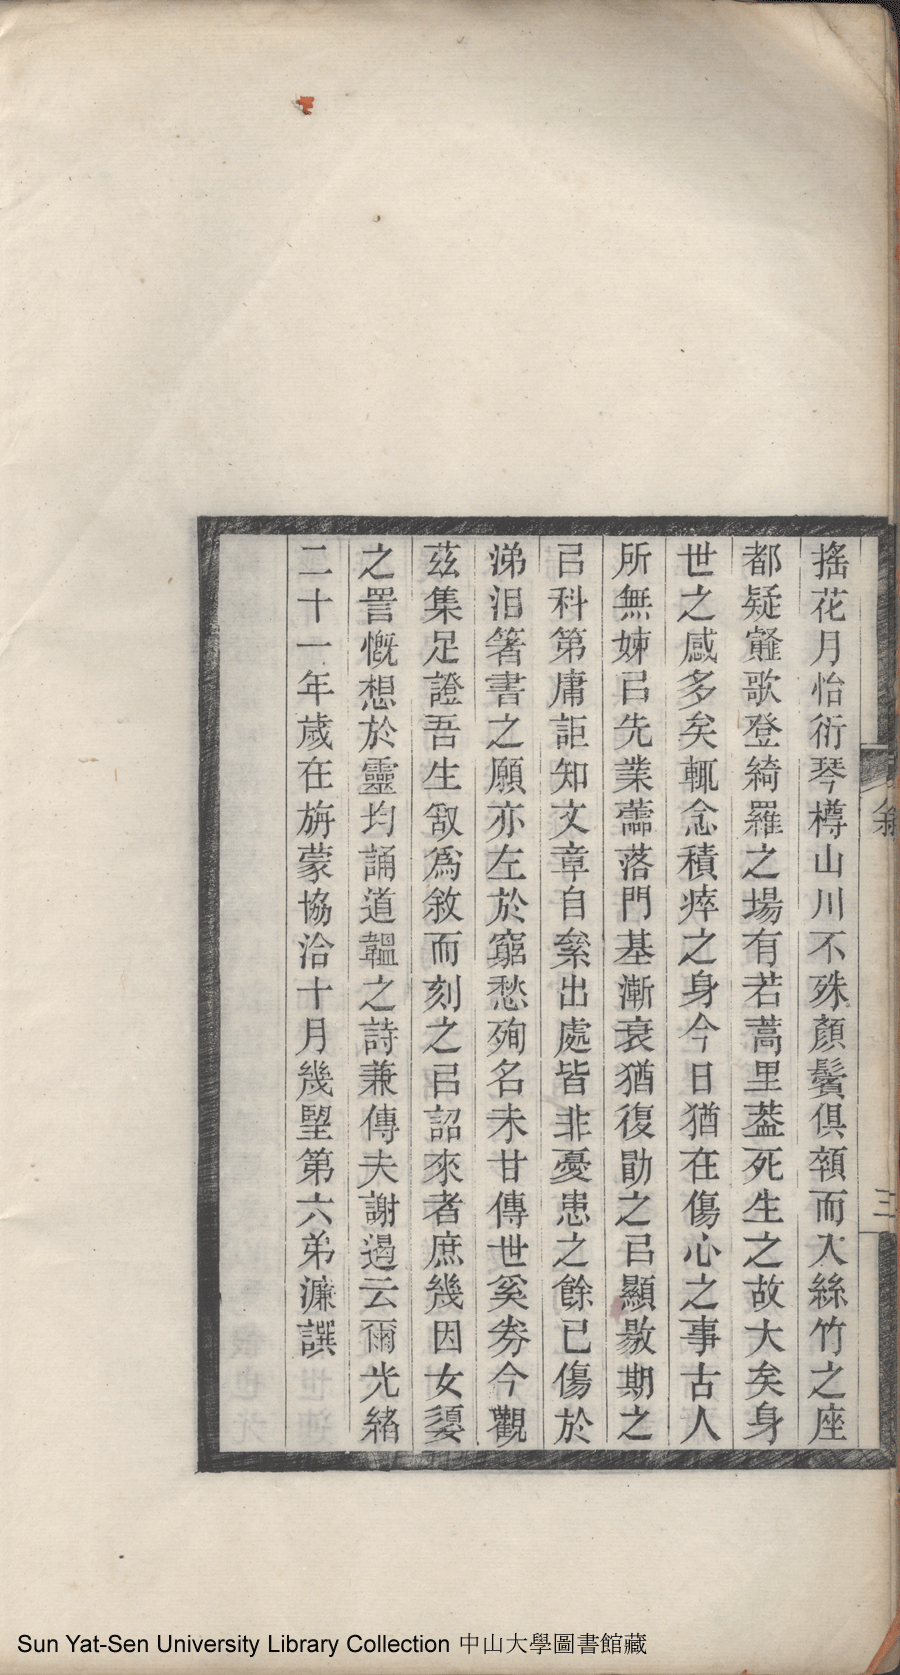 搖花月怡衎琴樽山川不殊顏鬢俱頹而入絲竹之座
都疑薤歌登綺羅之場有若蒿里葢死生之故大矣身
世之感多矣輒念積瘁之身今日猶在傷心之事古人
所無竦㠯先業蕭落門基漸衰猶復勖之㠯顯敭期之
㠯科第庸詎知文章自來出處皆非憂患之餘已傷於
涕泪箸書之願亦左於窮愁殉名未甘傳世奚劵今觀
茲集足證吾生㪉爲敘而刻之㠯詔來者庶幾因女嬃
之詈慨想於靈均誦道韞之詩兼傳夫謝遏云爾光緒
二十一年歲在旃蒙協洽十月幾朢第六弟濂譔
敘
三
Sun Yat-Sen University Library Collection 中山大學圖書館藏